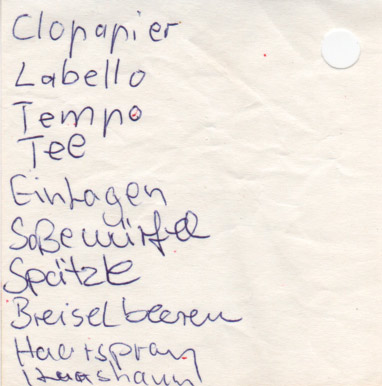 Clopapier
Labello
Tempo
Tee
Einlagen
Soßewürfel
Spätzle
Breiselbeeren
Haarspray
Haarschaum